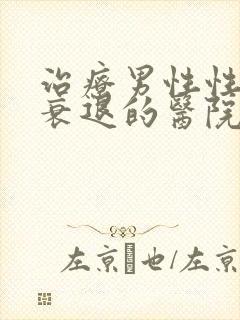 治療男性性
衰退的醫院
左京 也/左京